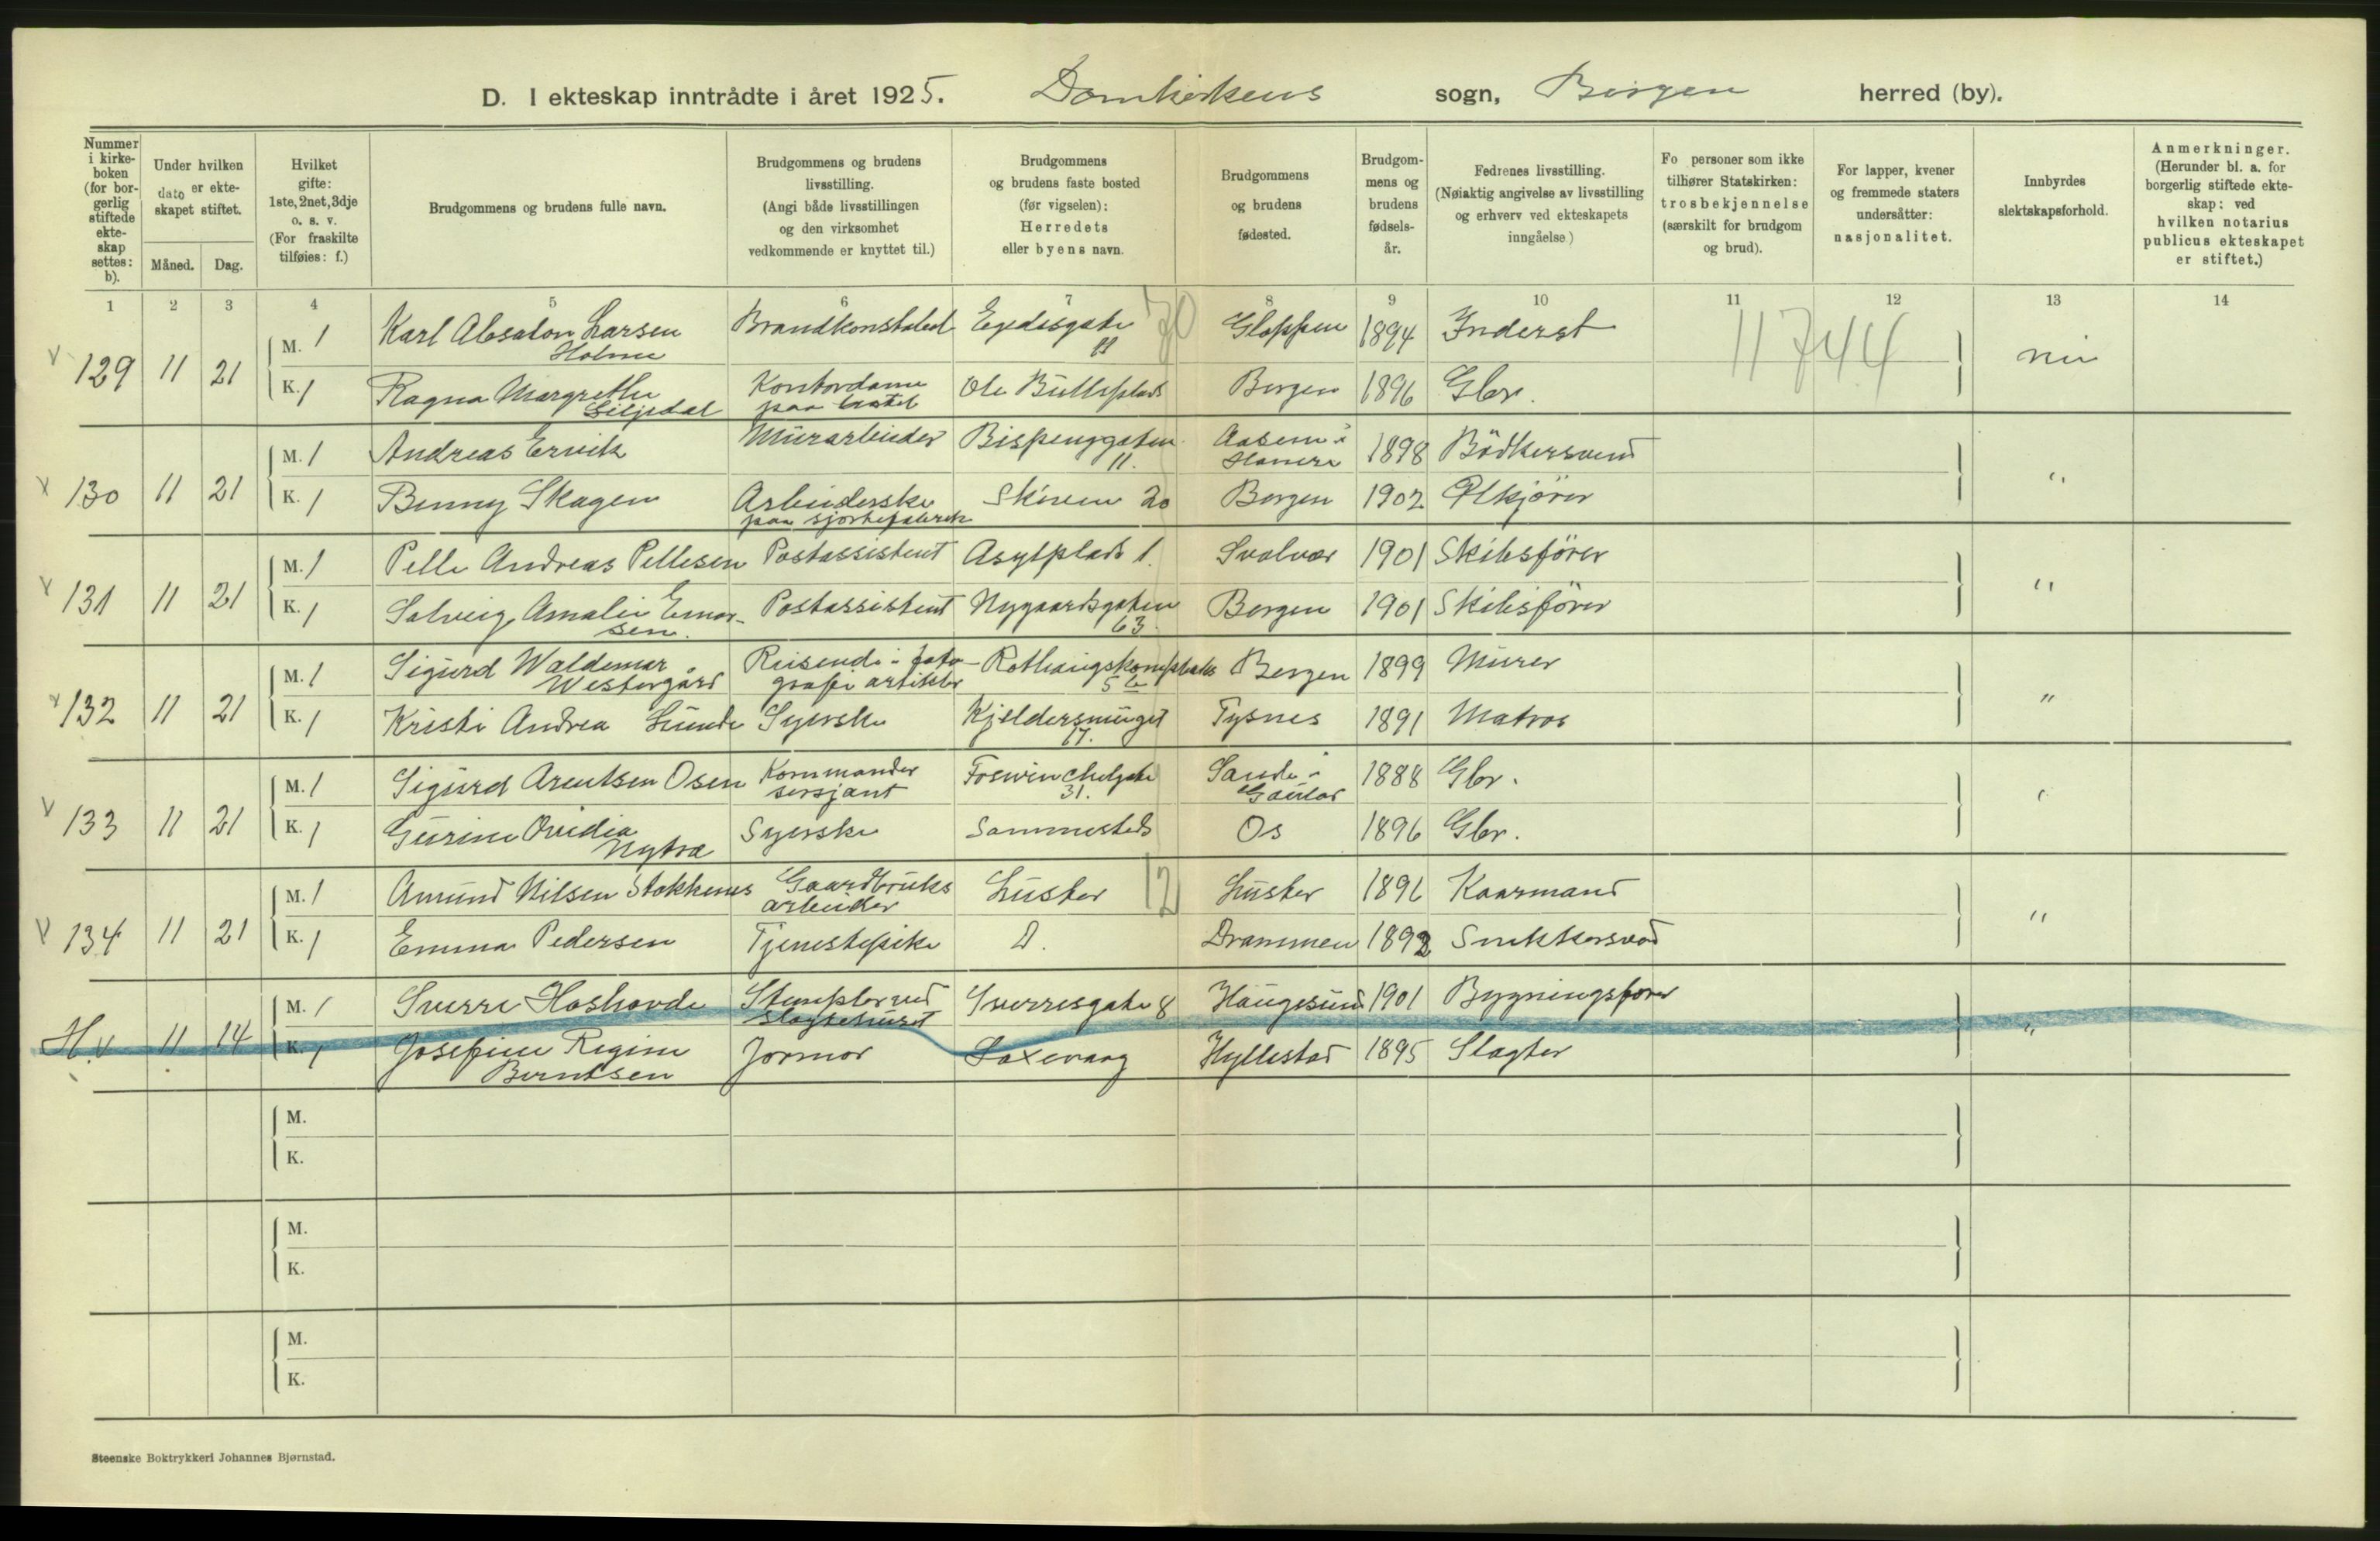 D. I ekteskap inntrådte i året 1925. Domkirkens sogn, Bergen herred (by).
Nummer i kirke-boken (for bor-gerlig stiftede ekte-skap settes: b).
Under hvilken dato er ekte-skapet stiftet.
Måned. Dag.
Hvilket gifte: 1ste, 2net, 3dje o. s. v. (For fraskilte tilføies: f.)
Brudgommens og brudens fulle navn.
Brudgommens og brudens livsstilling. (Angi både livsstillingen og den virksomhet vedkommende er knyttet til.)
Brudgommens og brudens faste bosted (før vigselen): Herredets eller byens navn.
Brudgommens og brudens fødested.
Brudgom-mens og brudens fødsels-år.
Fedrenes livsstilling. (Nøiaktig angivelse av livsstilling og erhverv ved ekteskapets inngåelse.)
Fo personer som ikke tilhører Statskirken: trosbekjennelse (særskilt for brudgom og brud).
For lapper, kvener og fremmede staters undersåtter: nasjonalitet.
Innbyrdes slektskapsforhold.
Anmerkninger. (Herunder bl. a. for borgerlig stiftede ekte-skap: ved hvilken notarius publicus ekteskapet er stiftet.)
1 2 3 4 5 6 7 8 9 10 11 12 13 14
v 129 11 21 M. 1 Karl Absalon Larsen Holme Brandkonstabel Egedesgate 11 70 Gloppen 1894 Inderst 11744
K. 1 Ragna Margrethe Liljedal Kontordame paa hotel Ole Bullsplads Bergen 1896 Gbr.
v 130 11 21 M. 1 Andreas Ervik Murarbeider Bispenggaten 11. Aasem i 1898 Bödkersvend "
K. 1 Benny Skagen Arbeiderske Skiven 20 Bergen 1902 Ölkjörer
v 131 11 21 M. 1 Pelle Andreas Pellesen Postassistent Asylplads 1. Svolvær 1901 Skibsförer "
K. 1 Solveig Amalie Einar-sen. Postassistent Nygaardsgaten 63. Bergen 1901 Skibsförer
v 132 11 21 M. 1 Sigurd Waldemar Westergård Reisende i foto-grafi artikler 5 b Bergen 1899 Murer "
K. 1 Kristi Andrea Lunde Syerske Kjeldersmuget 17. Tysnes 1891 Matros
v 133 11 21 M. 1 Sigurd Arentsen Osen Kommander sersjant Foswinchelsgate 31. Sande i Gaular 1888 Gbr. "
K. 1 Gurine Ovidia Nytræ Syerske Sammesteds Os 1896 Gbr.
v 134 11 21 M. 1 Amund Nilsen Stokkenes Gaardbruks arbeider Luster 12 Luster 1896 Kaarmand "
K. 1 Emma Pedersen Tjenestepike D. Drammen 1892 Snekkersvend
H. v 11 14 M. 1 Sverre Haskovde Stempler ved Slagtehuset Sverresgate 8 Haugesund 1901 Bygningsfører "
K. 1 Josefine Regine Berntsen Jormor Saxevaag Hyllestad 1895 Slagter
M.
K.
M.
K.
M.
K.
Steenske Boktrykkeri Johannes Bjørnstad.